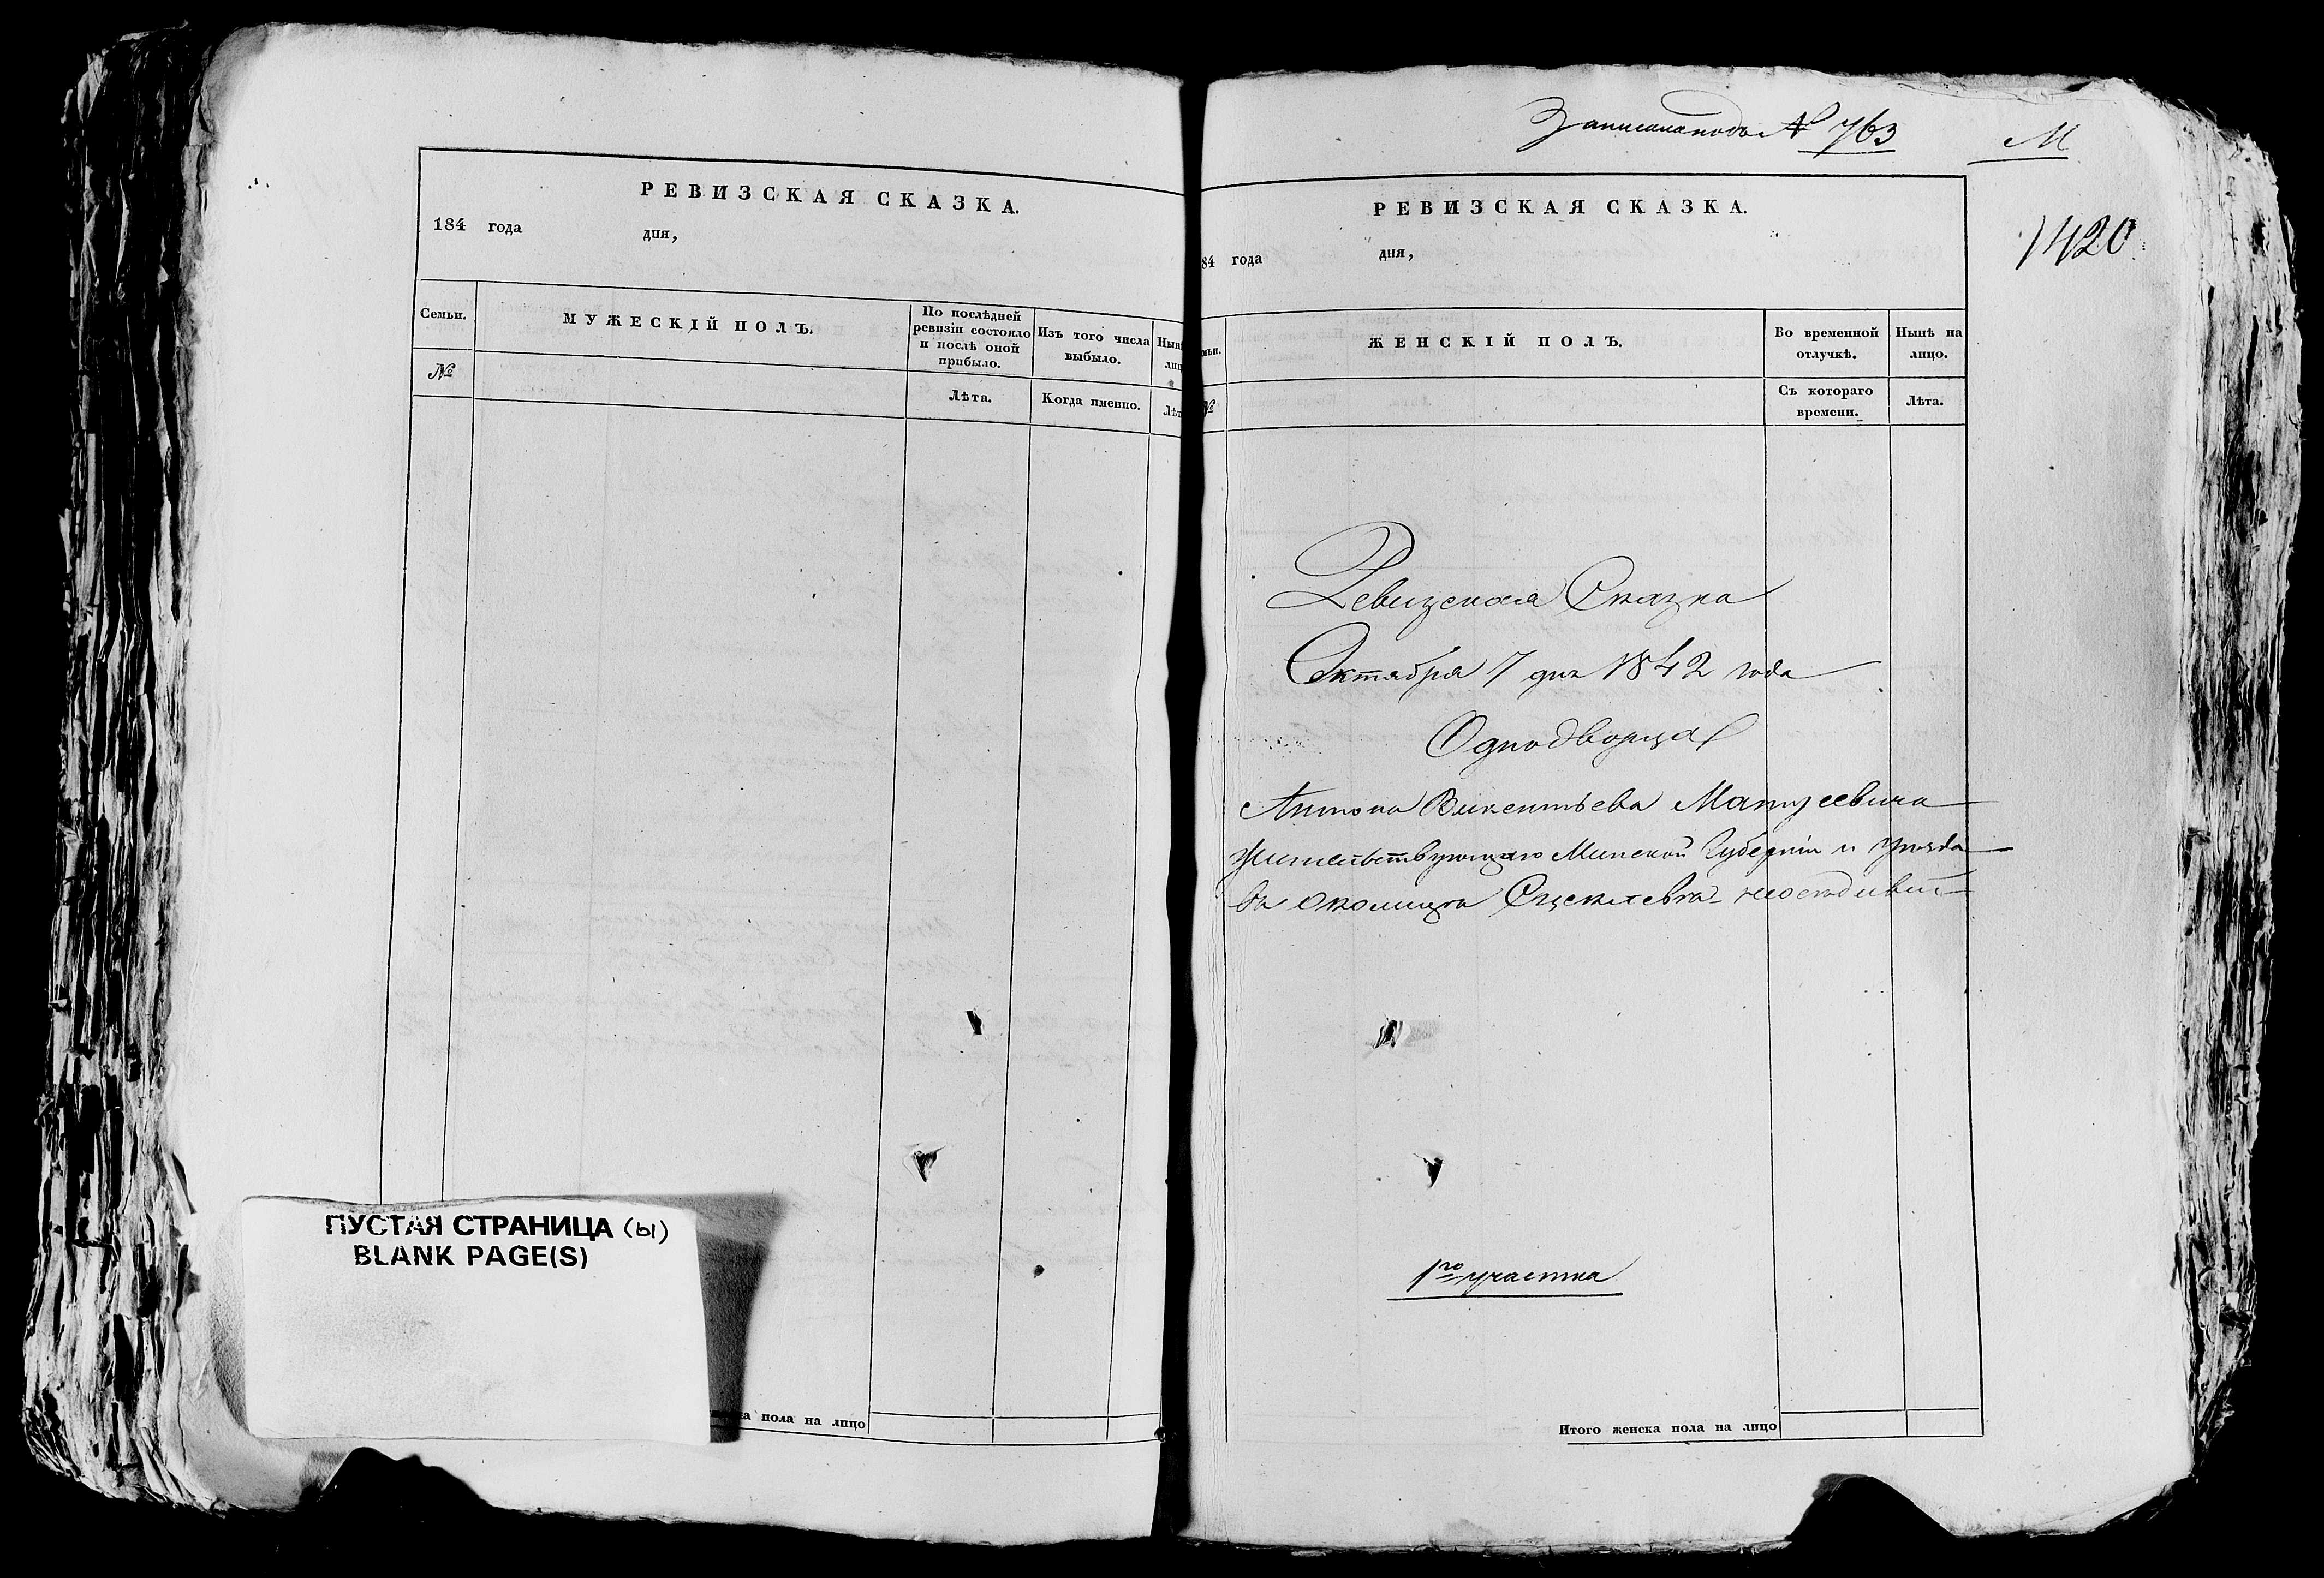 РЕВИЗСКАЯ СКАЗКА.
184 года дня,
Семьи. МУЖЕСКІЙ ПОЛЪ. По послѣдней ревизіи состояло и послѣ оной прибыло. Изъ того числа выбыло.
№ Лѣта. Когда именно.
ПУСТАЯ СТРАНИЦА (ы)
BLANK PAGE(S)
пола на лицо
Записана подъ № 763
М
1420
РЕВИЗСКАЯ СКАЗКА.
84 года дня,
ЖЕНСКІЙ ПОЛЪ. Во временной отлучкѣ. Нынѣ на лицо.
№ Съ котораго времени. Лѣта.
Ревизская Сказка
Октября 7 дня 1842 года
Однодворца
Антона Викентьева Матусевича
Жительствующаго Минской Губерніи и уѣзда
въ околицѣ
1го участка
Итого женска пола на лицо